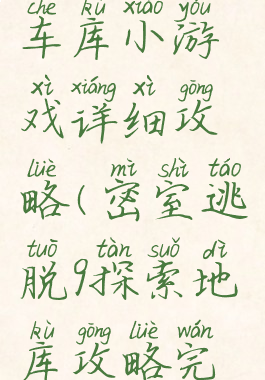 chē kù xiǎo yóu
车库小游
xì xiáng xì gōng
戏详细攻
lüè mì shì táo
略(密室逃
tuō tàn suǒ dì
脱9探索地
kù gōng lüè wán
库攻略完